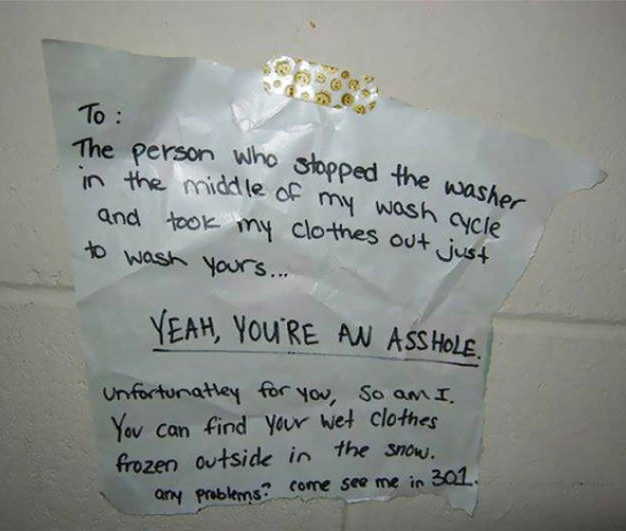 To :
The person who stopped the washer
in the middle of my wash cycle
and took my clothes out just
to wash yours...
YEAH, YOU'RE AN ASSHOLE.
unfortunatley for you, so am I.
You can find your wet clothes
frozen outside in the snow.
any problems? come see me in 301.